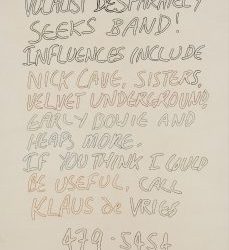 VOCALIST DESPARATELY
SEEKS BAND!
INFLUENCES INCLUDE
NICK CAVE, SISTERS,
VELVET UNDERGROUND,
EARLY BOWIE AND
HEAPS MORE.
IF YOU THINK I COULD
BE USEFUL, CALL
KLAUS de VRIES
479·5451